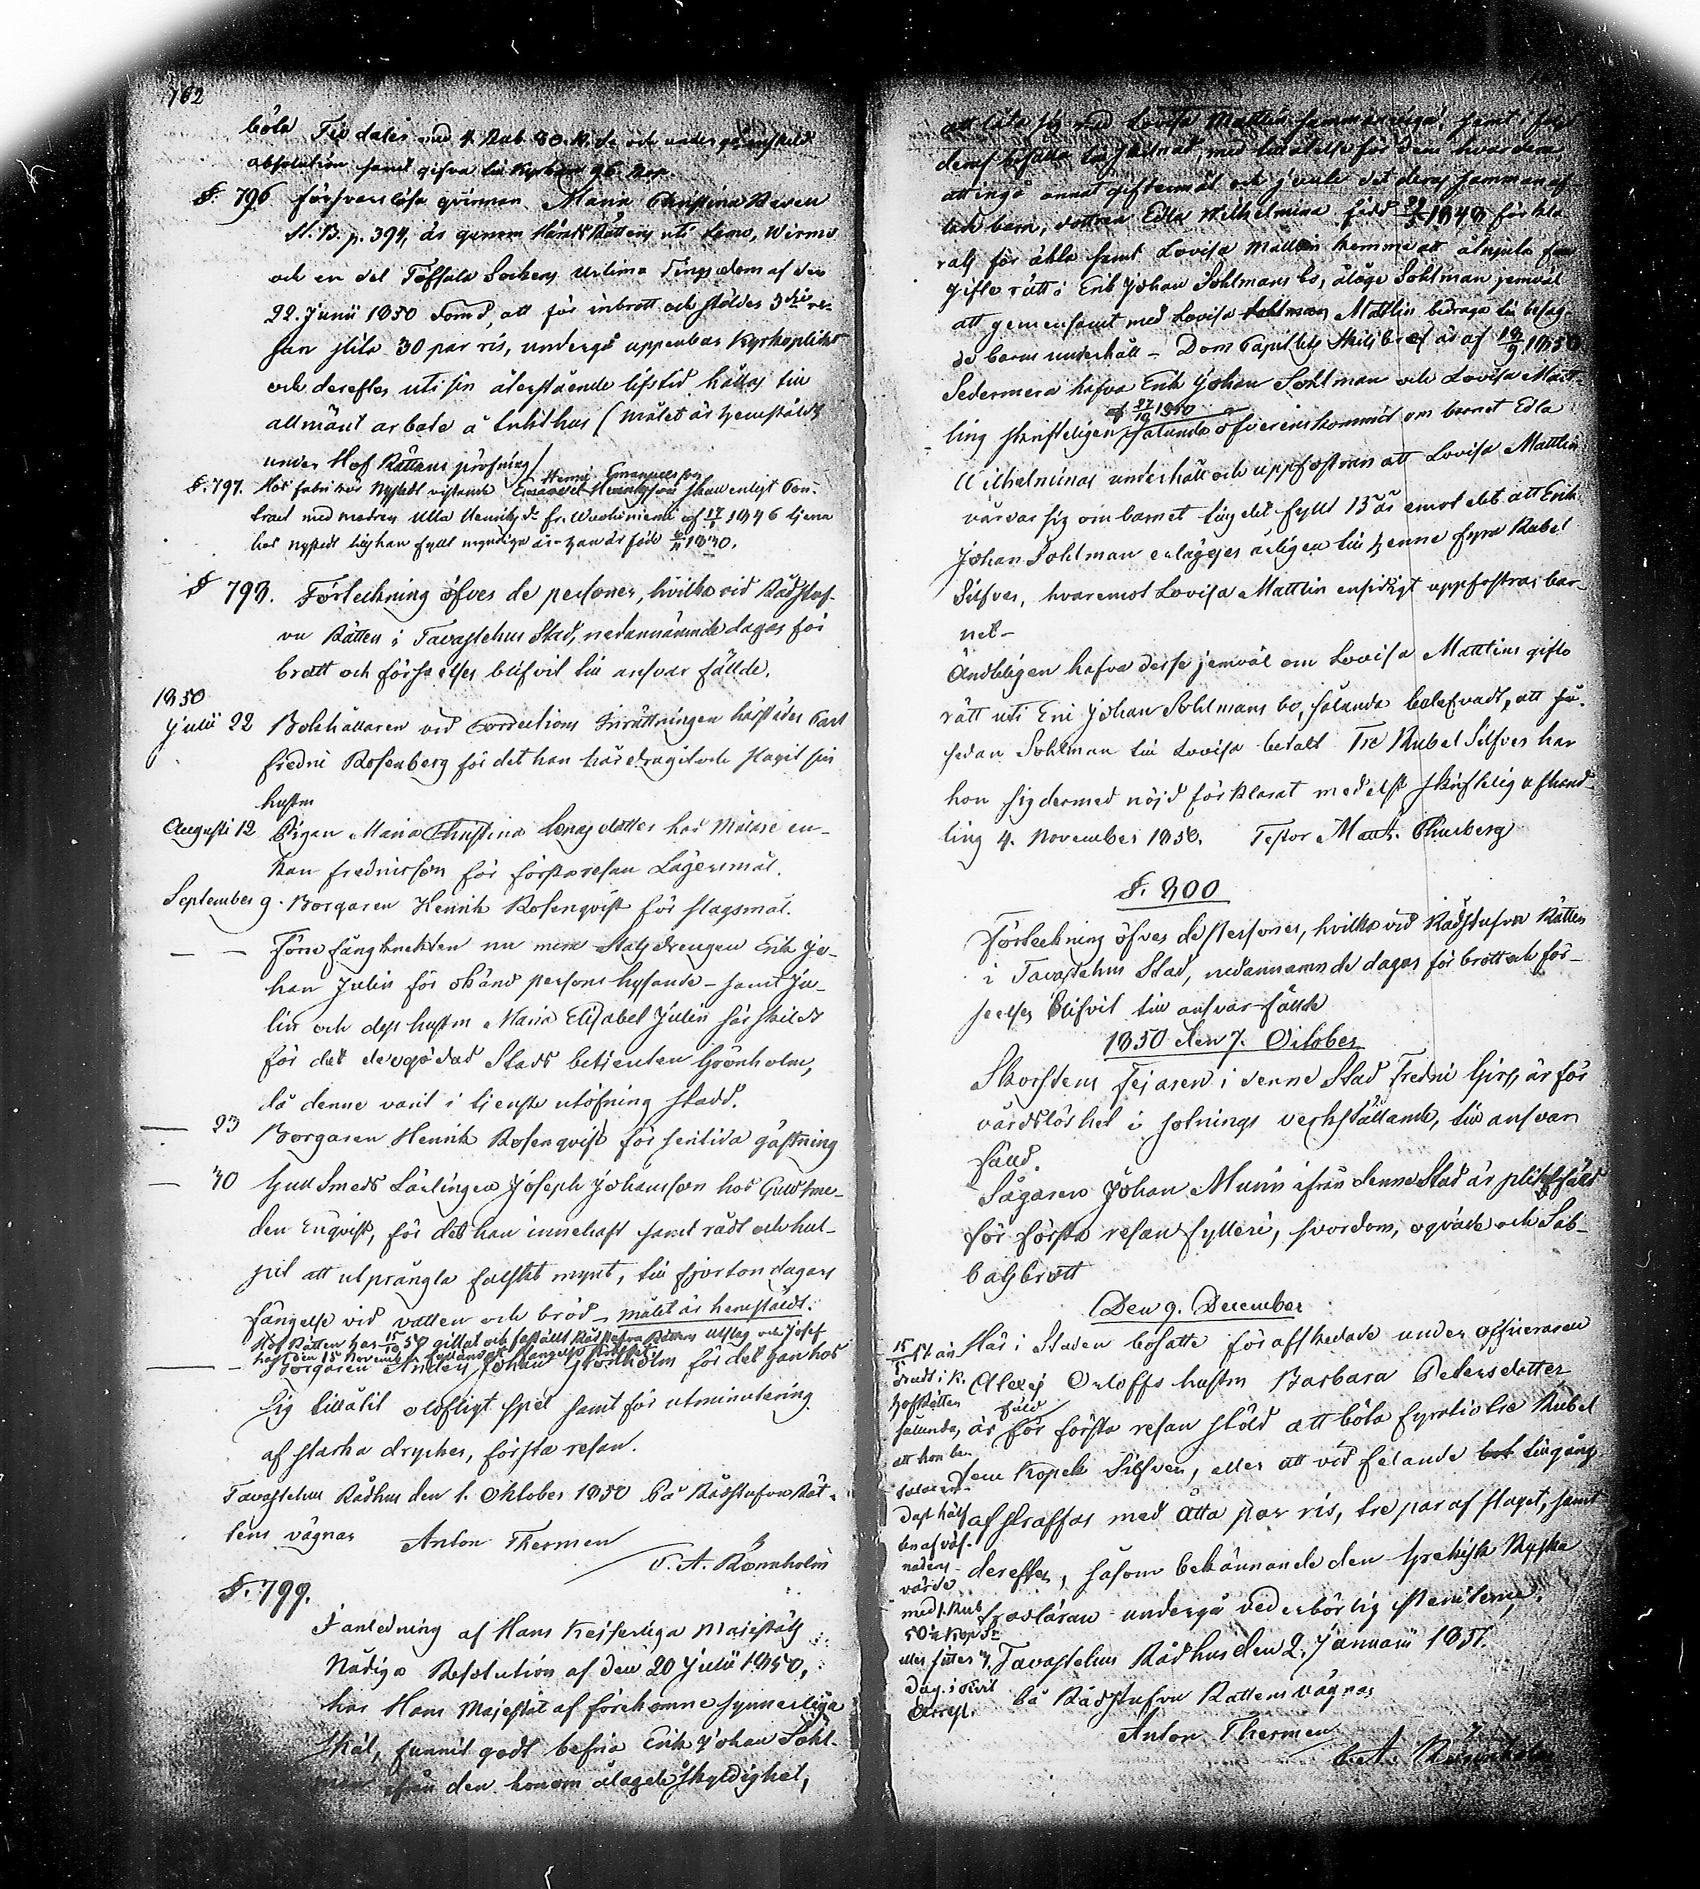 162
böta Tio daler med 4. Rub 80. K. Sr och undergå enskild
absolution samt gifva till Kyrkan 96. Kop.
§. 796 försvarslösa qvinnan Maria Christina Reven
N. B. p. 394, är genom Härads Rättens uti Lemo, Wirmo
och en del Töfsala Socknens Urtima Tings dom af den
22. Junii 1850 dömd, att för inbrott och stöldes 3dje re-
san slita 30 par ris, undergå uppenbar Kyrkoplikt
och derefter uti sin återstående lifstid hållas till
allmänt arbete å tukthus (målet är hemstäldt
under Hof Rättens pröfning)
Henric Emanuelsson
§. 797. Hos fabrikör Nystedt vistande Emanuel Henricsson skall enligt Con-
tract med modren Ulla Henricsd. fr. af 17/1 1846 tjena
hos Nystedt tills han fyllt myndiga år - han är född 1830.
§ 798. Förteckning öfver de personer, hvilka vid Rådstuf-
vu Rätten i Tavastehus Stad, nedannämnde dagar för
brott och förseelser blifvit till ansvar fällde.
1850
Julii 22 Bokhållaren vid Corrections Inrättningen härstädes Carl
Fredric Rosenberg för det han hårdragit och slagit sin
hustru
Augusti 12 Pigan Maria Christina dotter hos Målare en-
kan Fredricsson för första resan Lägersmål.
September 9. Borgaren Henrik Rosenqvist för slagsmål.
— — Förre fångknekten nu mera Stalldrengen Erik Jo-
han Julin för okänd persons hysande - samt Ju-
lin och dess hustru Maria Elisabet Julin särskildt
för det de ogödat Stads betjenten Grönholm,
då denne varit i tjenste utöfning stadd.
— 23 Borgaren Henrik Rosenqvist för sentida gästning
— 30 Gull Smeds Lärlingen Joseph Johansson hos Guldsme-
den Enqvist, för det han innehaft samt rådt och hul-
pit att utprångla falskt mynt, till fjorton dagars
fängelse vid vatten och bröd - målet är hemstäldt.
Hof Rätten har 15/10 50 gillat och fastställt Rådstufvu Rättens Utslag och Josef
har den 15 November
— — Borgaren Anders Johan Grönholm för det han hos
sig tillåtit olofligt spel samt för utminutering
af starka drycker, första resan.
Tavastehus Rådhus den 1. Oktober 1850 På Rådstufvu Rät-
tens vägnar Anton Thermen
C. A. Rönnholm
§. 799.
I anledning af Hans Kejserliga Majestäts
Nådiga Resolution af den 20 Julii 1850,
har Hans Majestät af förekomne synnerliga
skäl, funnit godt befria Erik Johan Sohl-
man ifrån den honom ålagde skyldighet,
att låta sig med Lovisa Mattlin sammanviga, samt
deras till skilnad, med tillåtelse för dem hvardera
att ingå annat giftermål och jemte det deras samman af-
lade barn, dottren Edla Wilhelmina född 1848 förkla-
rats för äkta samt Lovisa Mattlin komme att åtnjuta sin
gifto rätt i Erik Johan Sohlmans bo, ålagt Sohlman jemväl
att gemensamt med Lovisa Sohlman Mattlin bidraga till besag-
de barns underhåll - Dom Capitlets Skiljebref är af 18/9 1850
Sedermera hafva Erik Johan Sohlman och Lovisa Matt-
af 27/10 1850
lin skrifteligen sålunda öfverenskommit om barnet Edla
Wilhelminas underhåll och uppfostran att Lovisa Mattlin
vårdar sig om barnet tills det fyllt 15 år emot det att Erik
Johan Sohlman erlägger årligen till henne fyra Rubel
Silfver, hvaremot Lovisa Mattlin ensidigt uppfostrar bar-
net -
Ändteligen hafva desse jemväl om Lovisa Mattlins gifto
rätt uti Eric Johan Sohlmans bo, sålunda öfvat, att se-
sedan Sohlman till Lovisa betalt Tre Rubel Silfver har
hon sig dermed nöjd förklarat medelst skriftelig afhand-
ling 4. November 1850. Testor Matt. Thurberg
§. 800
Förteckning öfver de Personer, hvilka vid Rådstufvu Rätten
i Tavastehus Stad, nedannämnde dagar för brott och för-
seelser blifvit till ansvar fällde
1850 den 7. October
Skorstens fejaren i denne Stad Fredric Girs, är för
vårdslöshet i sotnings verkställande, till ansvar
fälld.
Sågaren Johan Munin ifrån denne Stad är pliktfälld
för första resan fylleri, svordom, oqväde och Sab-
batsbrott
Den 9. December
Här i Staden bosatte förafskedade under officeraren
Alexej Orloffs hustru Barbara Petersdotter
fälld
är för första resan stöld att böta fyratio tre Rubel
fem Kopek Silfver, eller att vid felande bot tillgång
afstraffas med åtta par ris, tre par af slaget, samt
derefter, såsom bekännande den Grekisk Ryska
trosläran undergå vederbörlig penitence.
15/5 51 an-
drad i K.
Hofrätten
sålunda,
att hon be-
talar en-
dast hälf-
ten af våf-
nadens
värde
med 1. Rub
50 ½ Kop Sr
eller sitter 4.
Dag. i Civil
Arrest.
Tavastehus Rådhus den 2. Januarii 1851.
På Rådstufvu Rättens vägnar
Anton Thermen
C. A. Rönnholm